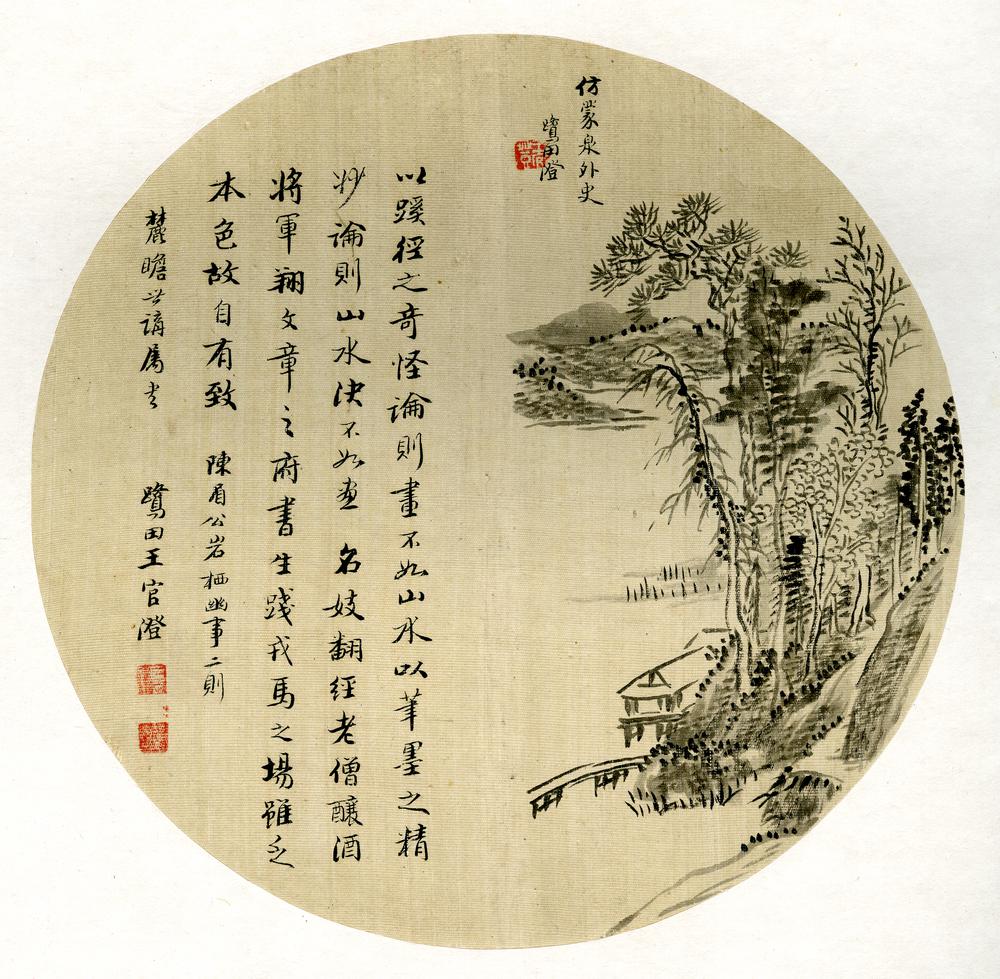 仿蒙泉外史
鷺田澄
以蹊徑之奇怪論則畫不如山水以筆墨之精
妙論則山水決不如畫 名妓翻經老僧釀酒
將軍翔文章之府書生踐戎馬之場雖乏
本色故自有致 陳眉公岩栖幽事二則
麓瞻世講屬書
鷺田王官澄